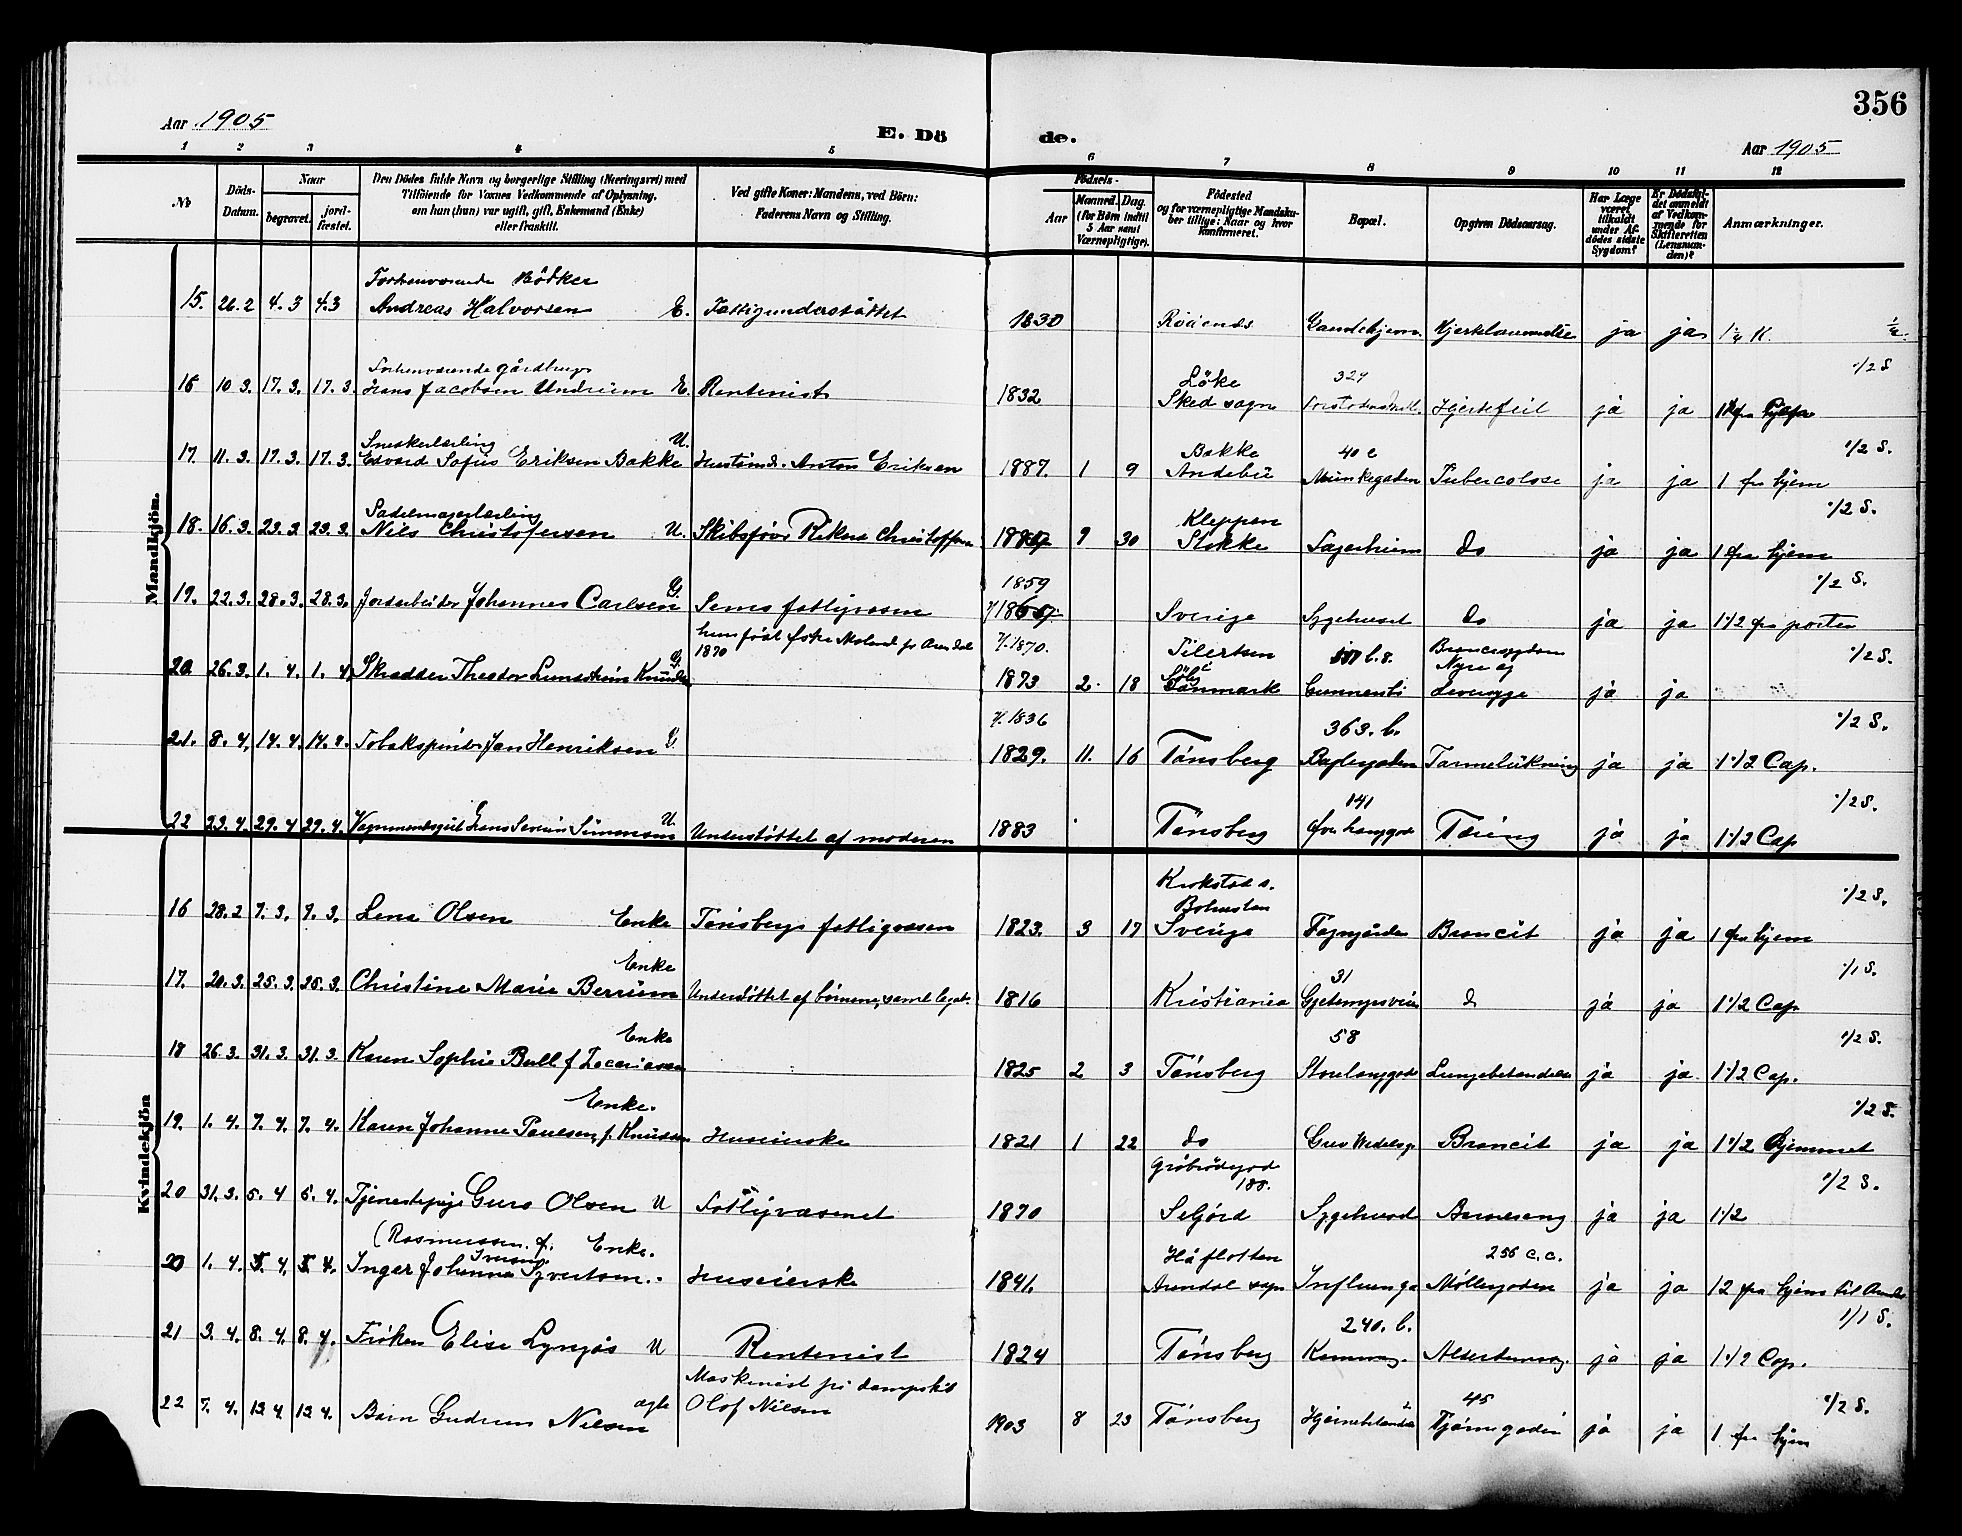 356
Aar 1905
E. Dö
de.
Aar 1905
1 2 3 4 5 6 7 8 9 10 11 12
No
Döds-
Datum.
Naar
begravet.
jord-
fæstet.
Den Dödes fulde Navn og borgerlige Stilling (Næringsvei) med
Tilföiende for Voxnes Vedkommende af Oplysning,
om han (hun) var ugift, gift, Enkemand (Enke)
eller fraskilt.
Ved gifte Koner: Mandens, ved Börn:
Faderens Navn og Stilling.
Födsels-
Aar
Maaned. Dag.
(for Börn indtil
5 Aar samt
Værnepligtige).
Födested
og for værnepligtige Mandska-
ber tillige: Naar og hvor
konfirmeret.
Bopæl.
Opgiven Dödsaarsag.
Har Læge
været
tilkaldt
under Af-
dödes sidste
Sygdom?
Er Dödsfal-
det anmeldt
af Vedkom-
mende for
Skifteretten
(Lensman-
den)?
Anmærkninger.
Mandkjön.
Forhenværende Bødker
15. 26.2 4.3 4.3 Andreas Halvorsen E. Fattigunderstøttet 1830 ja ja 1 1/4 K.
Forhenværende gårdbruger
1/2 S
Løke 324
16 10 3. 17. 3. 17. 3. Hans Jacobsen Undrum E. Rentenist 1832 Sked sogn Hjertefeil ja ja
Snekkerlærling U. Bakke 40 c 1/2 S.
17. 11. 3. 17. 3. 17. 3. Edvard Sofus Eriksen Bakke Anton Eriksen 1887. 1 9 Andebu Munkegaden Tubercolose ja ja 1 fra hjem
Sadelmagerlærling Kleppen 1/2 S.
18. 16. 3. 23. 3 23. 3. Nils Christofersen U. Skibsfører 9 30 Stokke do ja ja 1 fra hjem
G. 1859 1/2 S.
19. 22. 3. 28. 3. 28. 3. Jordarbeider Johannes Carlsen Sems fattigvæsen Sverige Sygehuset do ja ja 1 1/2 fra porten
1870 f. 1870. Broncesygdom 1/2 S.
Nyre og
20 26. 3. 1. 4. 1. 4 Skrædder Theodor G. 1873 2. 18 Danmark ja ja
f. 1836 363. b. 1/2 S.
21. 8. 4. 14. 4. 14. 4. Jan Henriksen 1829. 11. 16 Tønsberg Baglergaden ja ja 1 1/2 Cap.
U. 141 1/2 S.
22 23. 4. 29. 4 29. 4. Hans Severin Simonsen Understøttet af moderen 1883 Tønsberg Tæring ja ja 1 1/2 Cap
Kvindekjön
Krokstad s. 1/2 S.
16 28. 2 7. 3. 7. 3. Lena Olsen Enke Tønsbergs fattigvæsen 1823. 3 17 Sverige Broncit ja ja 1 fra hjem
Enke 31 1/1 S.
17. 20. 3. 25. 3. 25. 3. Christine Marie Berrum Understøttet af børnene, samt legat 1816 Kristiania do ja ja 1 1/2 Cap
Enke 58 1/2 S.
18 26. 3. 31. 3. 31. 3. Karen Sophie Bull f. Zacariasen 1825 2 3 Tønsberg Storelanggade Lungebetændelse ja ja. 1 1/2 Cap.
Enke. 1/2 S.
19. 1. 4. 7. 4. 7. 4. Karen Johanne Paulsen, f. Knudsen Huseierske 1821 1 22 do Grev Wedelsg. Broncit ja ja 1 1/2 hjemmet
188. 1/2 S.
20 31. 3. 5. 4 5. 4. Tjenestepige Guro Olsen U Fattigvæsenet 1870 Seljord Sygehuset Barneseng ja ja 1 1/2
(Rasmussen. f. Enke. 256 c. c.
20 1. 4. 5. 4. 5. 4. Inger Johanne Syvertsen. Huseierske 1841. Arendal sogn Influenza Møllergaden ja ja 12 fra hjem til Arendal
240. b. 1/1 S.
21 3. 4. 8. 4. 8. 4. Frøken Elise Lyngås U Rentenist 1824 Tønsberg Alderdomssvag. ja ja 1 1/2 Cap.
Maskinist på dampskib 45 1/2 S.
22 7. 4. 12 4. 12 4. Barn Gudrun Nilsen ægte Olof Nilsen 1903 8 23 Tønsberg Hjernebetændelse Tjømegaden ja ja 1 fra hjem